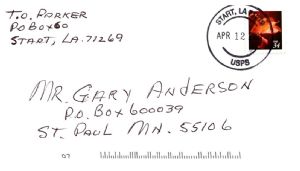 T.O. PARKER
P.O BOX 60
START, LA. 71269
START, LA
APR 12
USPS
34
MR. GARY ANDERSON
P.O. BOX 600039
ST. PAUL MN. 55106